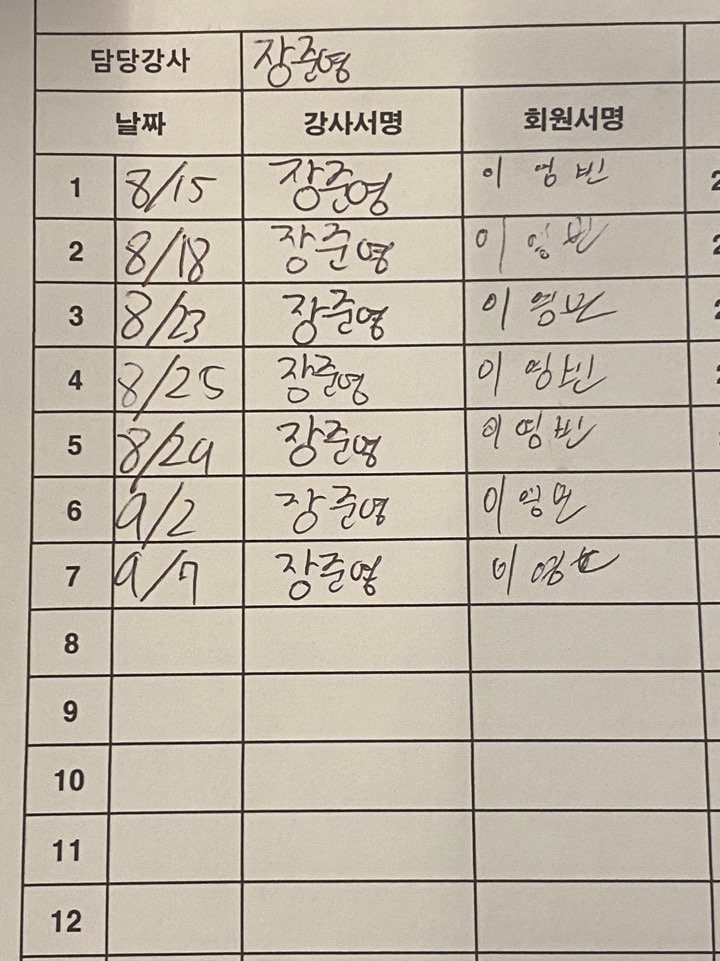 담당강사 장준영
날짜 강사서명 회원서명
1 8/15 장준영 이영빈
2 8/18 장준영 이영빈
3 8/23 장준영 이영빈
4 8/25 장준영 이영빈
5 8/29 장준영 이영빈
6 9/2 장준영 이영빈
7 9/7 장준영 이영빈
8
9
10
11
12